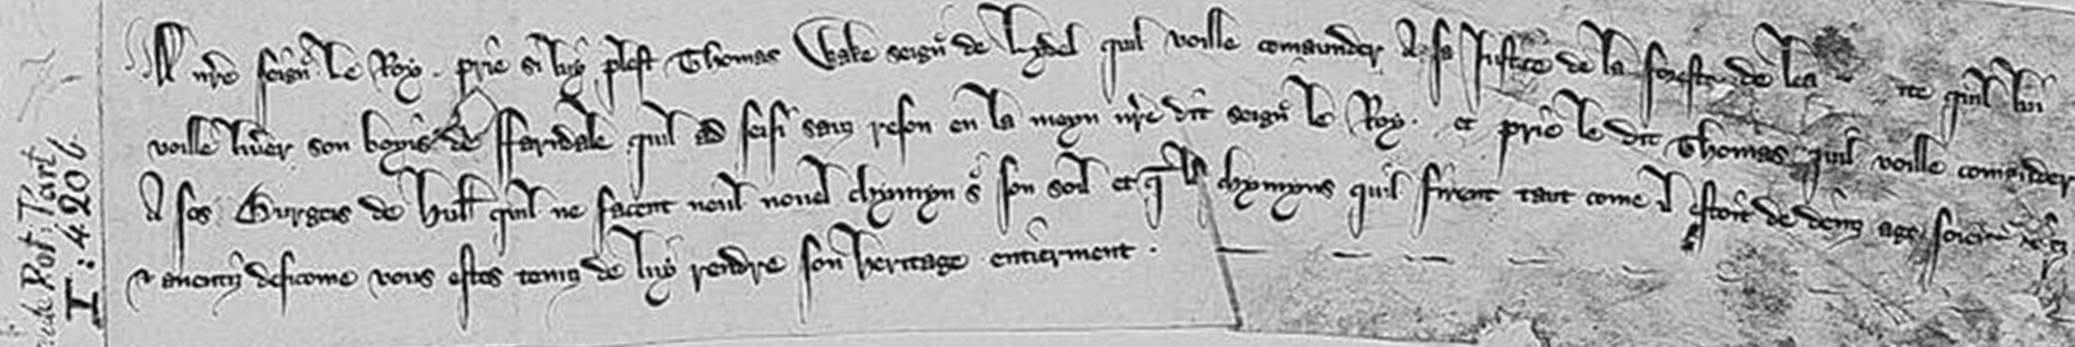 A n're seign' le Roy prie si luy plest Thomas Wake seign' de Lydel quil voille comaunder A sa Justice de la forest de la quil lui
voille liv'er son boys de Farndale quil ad seisi sanz reson en la meyn n're dit seign' le Roy. et prie le dit Thomas quil voille comander
A ses Burgeis de Hull quil ne facent nul novel chymyn s' son soil et q' les chymyns quil firent tant come il estoit dedeinz age soient
anenty desicome vous estes tenuz de luy rendre son heritage entierment.
Vide Rot. Parl
I: 420 b